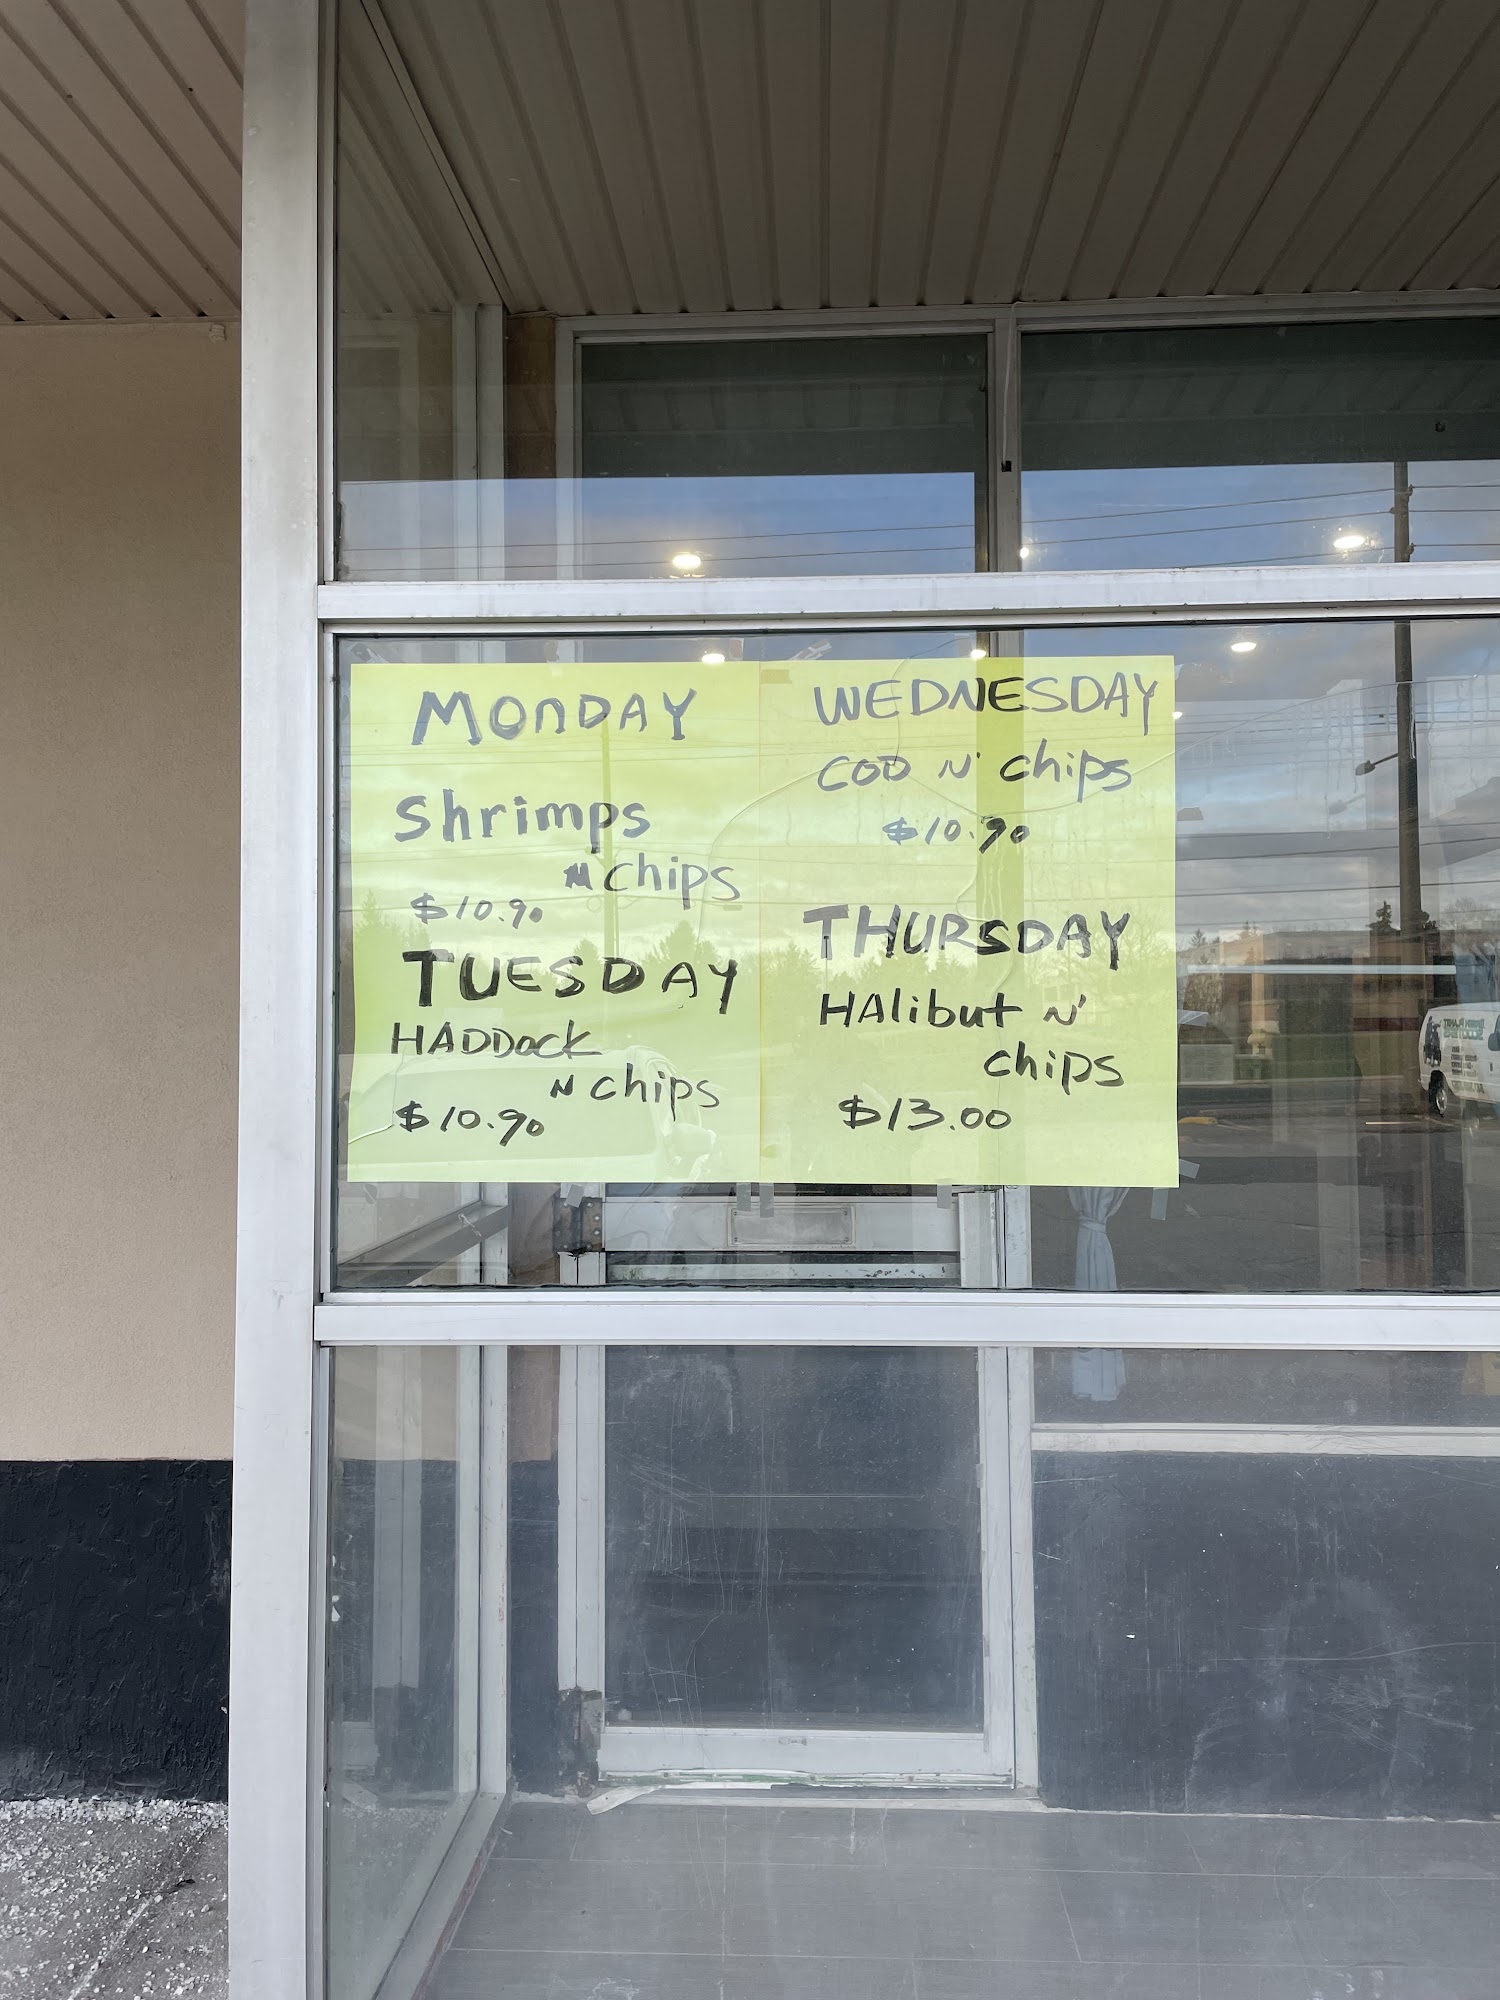 MONDAY
Shrimps
N chips
$10.90
TUESDAY
HADDOCK
N chips
$10.90
WEDNESDAY
COD N' chips
$10.90
THURSDAY
HAlibut N'
chips
$13.00